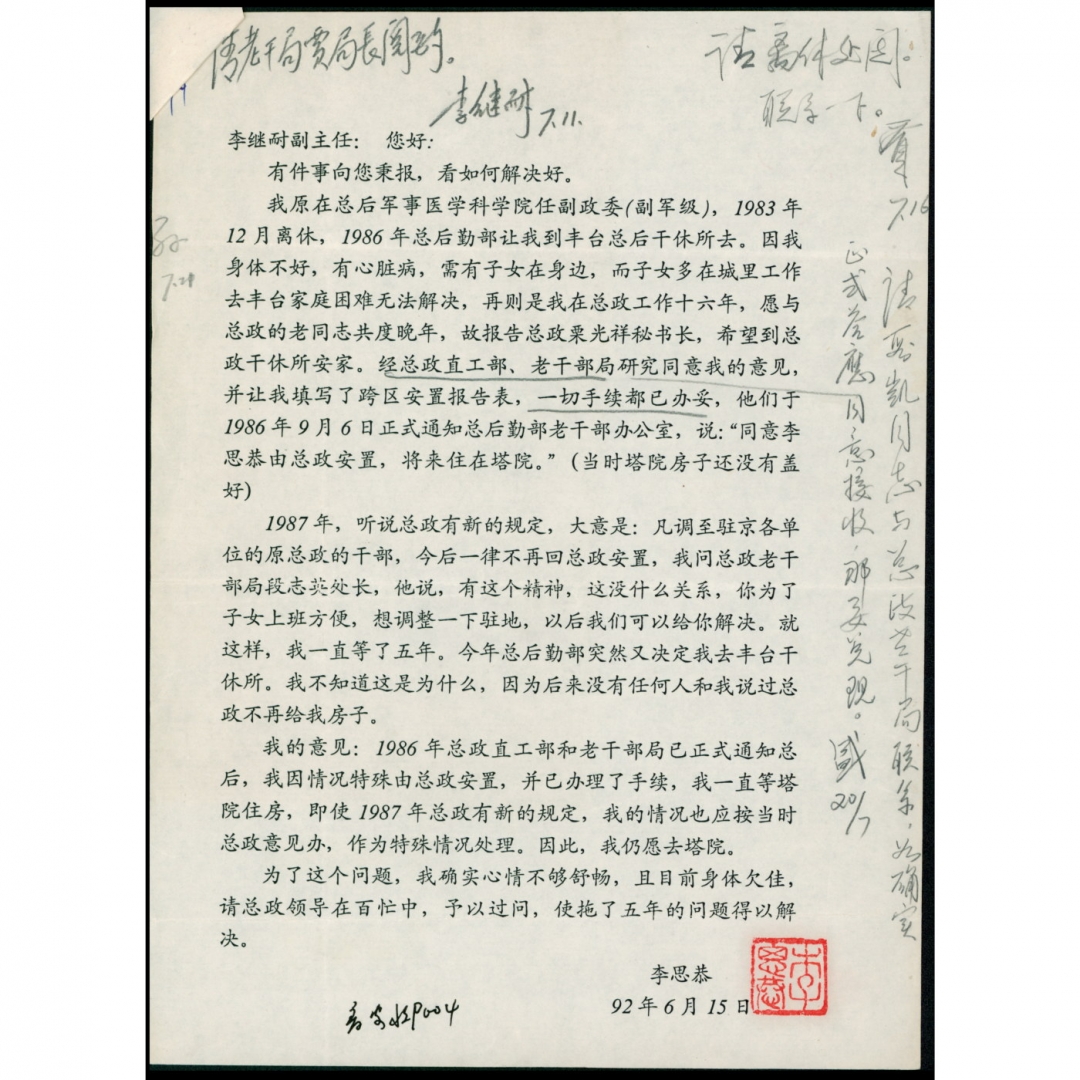 请老干局贾局长阅酌。
李继耐 7.11.
请离休处阅。
联系一下。
7.16
李继耐副主任： 您好：
有件事向您秉报，看如何解决好。
我原在总后军事医学科学院任副政委(副军级)，1983年
12月离休，1986年总后勤部让我到丰台总后干休所去。因我
身体不好，有心脏病，需有子女在身边，而子女多在城里工作
去丰台家庭困难无法解决，再则是我在总政工作十六年，愿与
总政的老同志共度晚年，故报告总政粟光祥秘书长，希望到总
政干休所安家。经总政直工部、老干部局研究同意我的意见，
并让我填写了跨区安置报告表，一切手续都已办妥，他们于
1986年9月6日正式通知总后勤部老干部办公室，说：“同意李
思恭由总政安置，将来住在塔院。”（当时塔院房子还没有盖
好)
1987年，听说总政有新的规定，大意是：凡调至驻京各单
位的原总政的干部，今后一律不再回总政安置，我问总政老干
部局段志英处长，他说，有这个精神，这没什么关系，你为了
子女上班方便，想调整一下驻地，以后我们可以给你解决。就
这样，我一直等了五年。今年总后勤部突然又决定我去丰台干
休所。我不知道这是为什么，因为后来没有任何人和我说过总
政不再给我房子。
我的意见：1986年总政直工部和老干部局已正式通知总
后，我因情况特殊由总政安置，并已办理了手续，我一直等塔
院住房，即使1987年总政有新的规定，我的情况也应按当时
总政意见办，作为特殊情况处理。因此，我仍愿去塔院。
为了这个问题，我确实心情不够舒畅，且目前身体欠佳，
请总政领导在百忙中，予以过问，使拖了五年的问题得以解
决。
李思恭
92年6月15日
李思恭
请 凯同志与总政老干局联系，如确实
正式答應同意接收，那要兑现。
盛 20/7
7.21